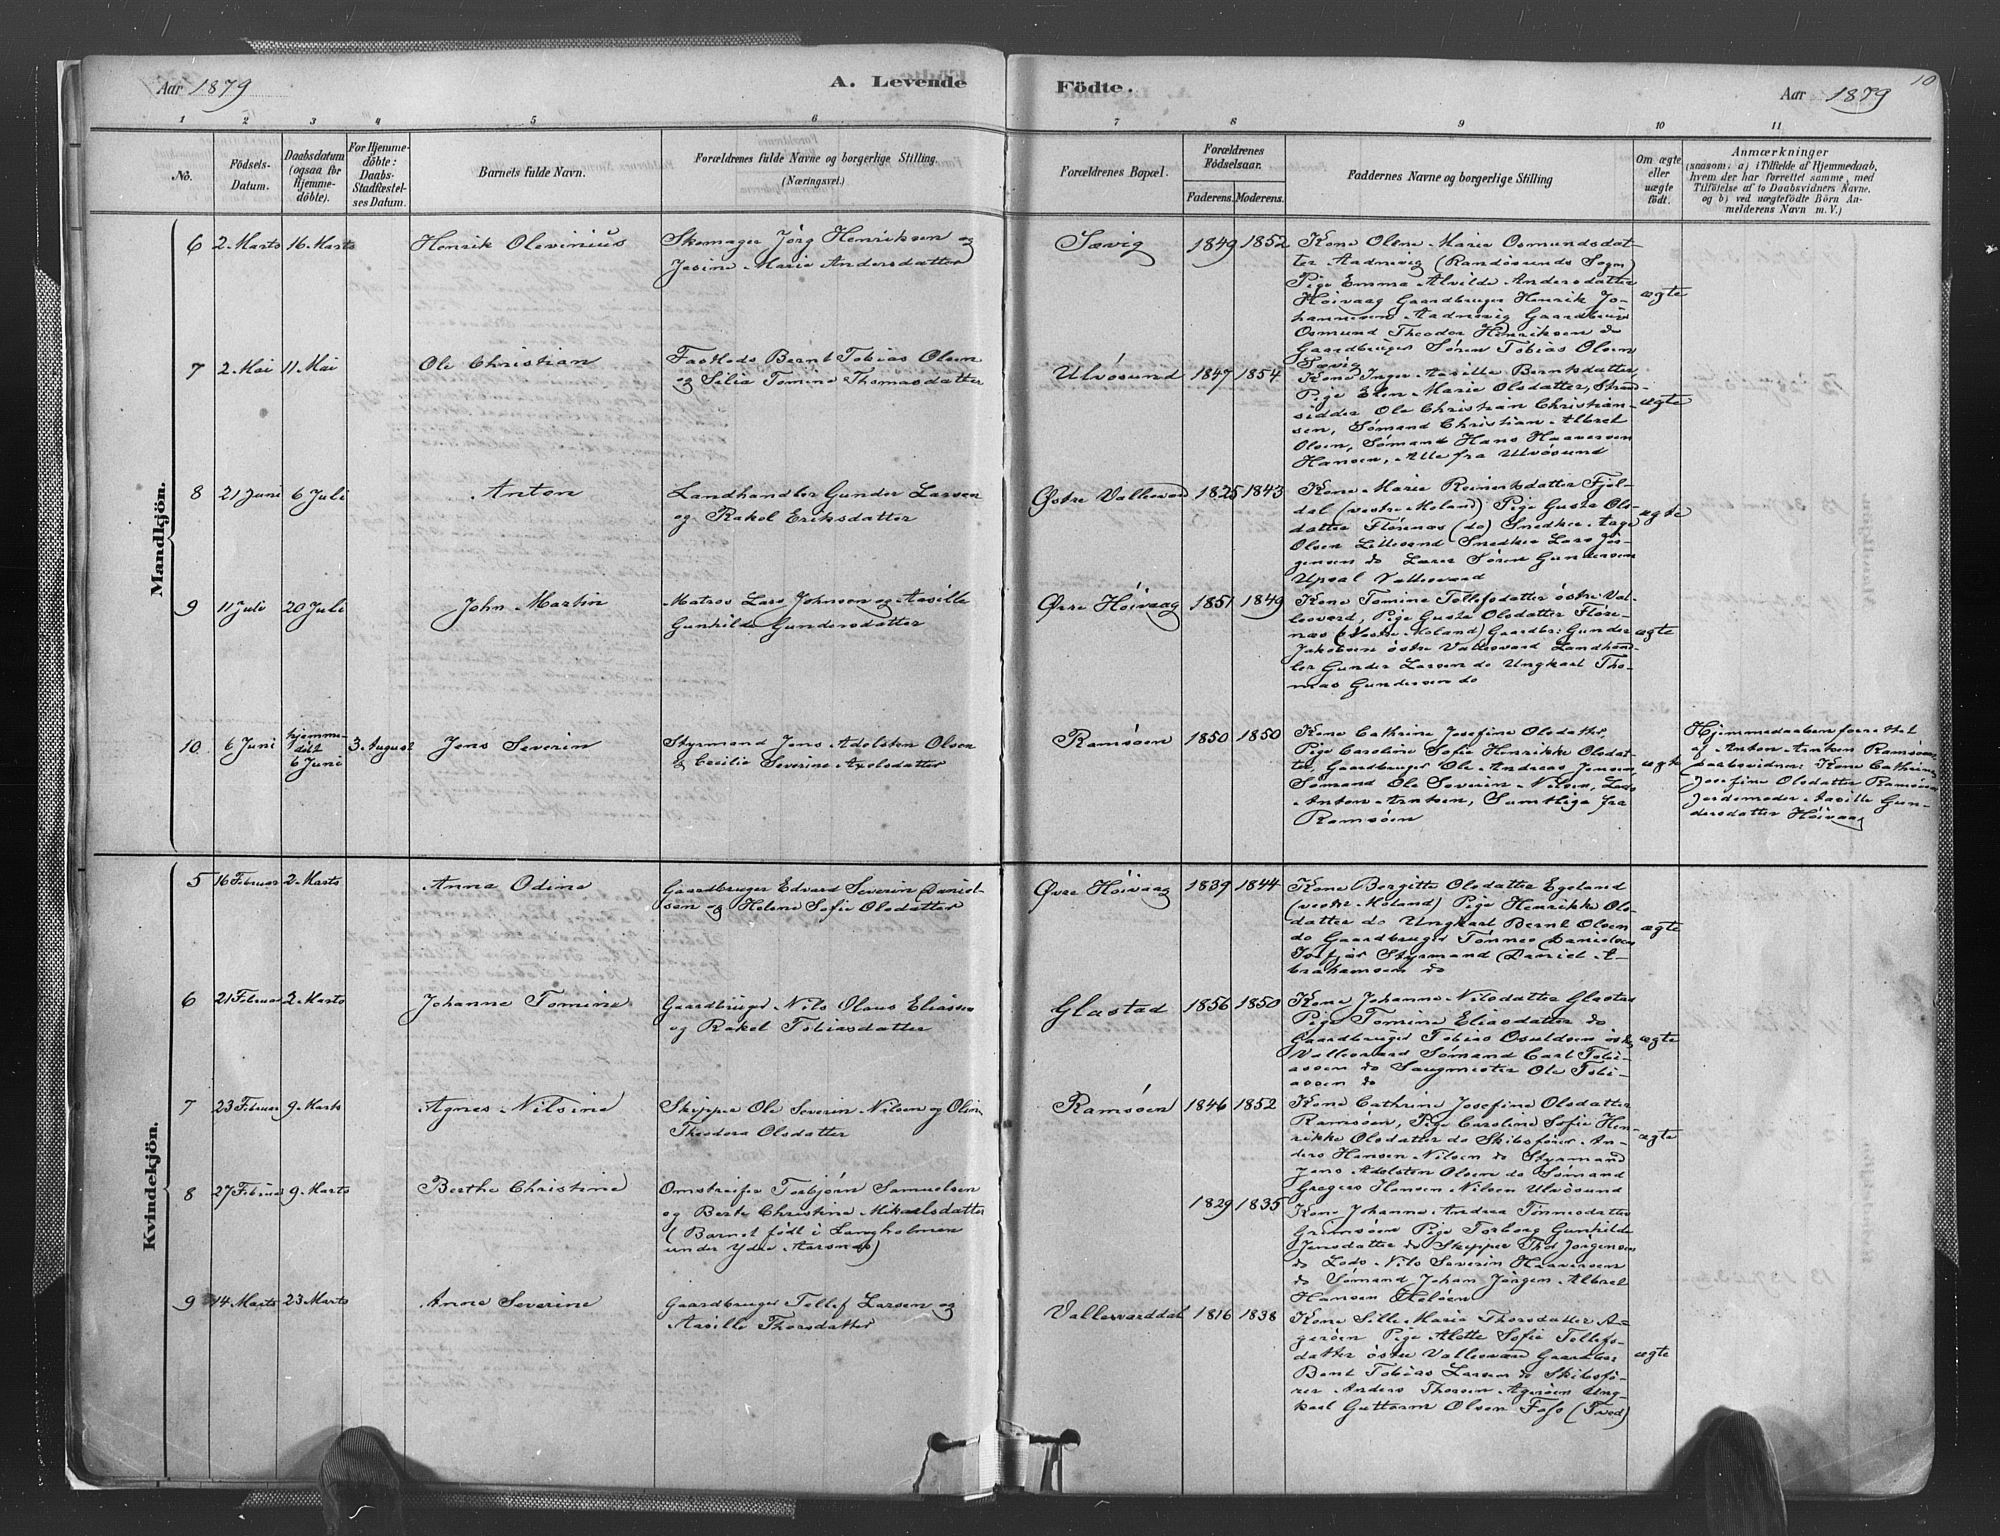 Aar 1879
A. Levende
Födte.
Aar 1879
10
1 2 3 4 5 6 7 8 9 10 11
No.
Födsels-
Datum.
Daabsdatum
(ogsaa for
Hjemme-
döbte).
For Hjemme-
döbte:
Daabs-
Stadfæstel-
ses Datum.
Barnets fulde Navn.
Forældrenes fulde Navne og borgerlige Stilling.
(Næringsvei.)
Forældrenes Bopæl.
Forældrenes
Födselsaar.
Faderens.
Moderens.
Faddernes Navne og borgerlige Stilling
Om ægte
eller
uægte
födt.
Anmærkninger
(saasom: a) i Tilfælde af Hjemmedaab,
hvem der har forrettet samme, med
Tilföielse af to Daabsvidners Navne.
og b) ved uægtefödte Börn An-
melderens Navn m. V.)
Mandkjön.
6 2 Marts 16 Marts
Henrik Olevinius
Skomager Jörg Henriksen og
Jesine Marie Andersdatter
Sævig
1849 1852
Kone Olene Marie Osmundsdat-
ter Aadnevig (Randösunds Sogn)
Pige Emma Alvilde Andersdatter
Höivaag Gaardbruger Henrik Jo-
hannesen Aadnevig Gaardbrug
Osmund Theodor Henriksen do
Gaardbruger Sören Tobias Olsen
Sævig
ægte
7 2 Mai 11 Mai
Ole Christian
Fastlods Bernt Tobias Olsen
og Silia Tomine Thomasdatter
Ulvösund
1847 1854
Kone Inger Aasille Berntsdatter,
Pige Elen Marie Olsdatter, Stran-
sidder Ole Christian Christian-
sen, Sömand Christian Albret
Olsen, Sömand Hans Haaversen
Hansen, Alle fra Ulvösund
ægte
8 21 Juni 6 Juli
Anton
Landhandler Gunder Larsen
og Rakel Eriksdatter
Østre Vallesvard
1825 1843
Kone Marie Reinertsdatter Fjel-
dal (vestre Moland) Pige Gusta Ols-
datter Flörenæs (do) Snedker Aage
Olsen Lillesand Snedker Lars Jör-
gensen do Lærer Sören Gundersen
Upsal Vallesvard
ægte
9 11 Juli 20 Juli
John Martin
Matros Lars Johnsen og Aasille
Gunhilde Gundersdatter
Øvre Höivaag
1851 1849
Kone Tomine Tellefsdatter östre Val-
lesvard, Pige Gusta Olsdatter Flöre-
næs (Vestre Moland) Gaardbr: Gunder
Jakobsen östre Vallesvard Landhand-
ler Gunder Larsen do Ungkarl Tho-
mas Gundersen do
ægte
10 6 Juni
hjemme-
döbt
6 Juni
3. August
Jens Severin
Styrmand Jens Adolsten Olsen
& Cecilie Severine Axelsdatter
Ramsöen
1850 1850
Kone Cathrine Josefine Olsdatter,
Pige Caroline Sofie Henrikke Olsdat-
ter, Gaardbruger Ole Andreas Jensen,
Sömand Ole Severin Nilsen, Lods
Anton Arntsen, Samtlige fra
Ramsöen
ægte
Hjemmedaaben forrettet
af Anton Arntsen Ramsöen
Daabsvidner: Kone Cathrine
Josefine Olsdatter Ramsöen
Jordemoder Aasille Gun-
dersdatter Höivaag
Kvindekjön.
5 16 Februar 2 Marts
Anna Odine
Gaardbruger Edvard Severin Daniel-
sen og Helene Sofie Olsdatter
Øvre Höivaag
1839 1844
Kone Bergitte Olsdatter Egeland
(vestre Moland) Pige Henrikke Ols-
datter do Ungkarl Bernt Olsen
do Gaardbruger Tönnes Danielsen
Styrmand Daniel A-
brahamsen do
ægte
6 21 Februar 2 Marts
Johanne Tomine
Gaardbruger Nils Olaus Eliassen
og Rakel Tobiasdatter
Glastad
1856 1850
Kone Johanne Nilsdatter Glastad
Pige Tomine Eliasdatter do
Gaardbruger Tobias Osuldsen östre
Vallesvard Sömand Carl Tobi-
assen do Saugmester Ole Tobi-
assen do
ægte
7 23 Februar 9 Marts
Agnes Nilsine
Skipper Ole Severin Nilsen og Oline
Theodora Olsdatter
Ramsöen
1846 1852
Kone Cathrine Josefine Olsdatter
Ramsöen, Pige Caroline Sofie Hen-
rikke Olsdatter do Skibsförer An-
ders Hansen Nilsen do Styrmand
Jens Adolsten Olsen do Sömand
Gregers Hansen Nilsen Ulvösund
ægte
8 27 Februar 9 Marts
Berthe Christine
Omstreifer Torbjörn Samuelsen
og Berte Christine Mikaelsdatter
(Barnet födt i Langholmen
under Ydre Aarsnæs)
1829 1835
Kone Johanne Andrea Tönnesdatter
Grimsöen Pige Torborg Gunhilde
Jensdatter do Skipper Thd Jörgensen
do Lods Nils Severin Haaversen
do Sömand Johan Jörgen Albret
Hansen
9 14 Marts 23 Marts
Anne Severine
Gaardbruger Tellef Larsen og
Aasille Thorsdatter
Vallesvarddal
1816 1838
Kone Sille Marie Thorsdatter A-
geröen Pige Alette Sofie Tellefs-
datter östre Vallesvard Gaardbr:
Bent Tobias Larsen do Skibsfö-
rer Anders Thorsen Ageröen Ung-
karl Guttorm Olsen Foss (Tved)
ægte